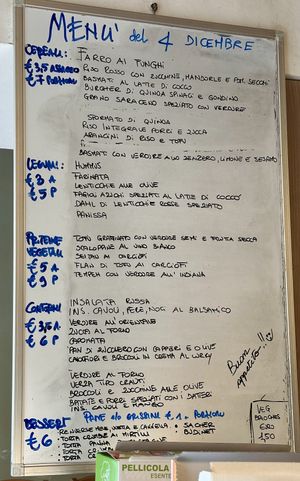 MENU' del 4 DICEMBRE
CEREALI: FARRO AI FUNGHI
€ 3,5 ASSAGGIO RISO ROSSO CON ZUCCHINE, MANDORLE E POM. SECCHI
€ 7 PORZIONE BASMATI AL LATTE DI COCCO
BURGHER DI QUINOA SPINACI E GONDINO
GRANO SARACENO SPEZIATO CON VERDURE
SFORMATO DI QUINOA
RISO INTEGRALE PORRI E ZUCCA
ARANCINI DI RISO E TOFU
BASMATI CON VERDURE ALLO ZENZERO, LIMONE E SESAMO
LEGUMI: HUMMUS
€ 3 A FARINATA
€ 5 P LENTICCHIE ALLE OLIVE
FAGIOLI AZUKI SPEZIATI AL LATTE DI COCCO
DAHL DI LENTICCHIE ROSSE SPEZIATO
PANISSA
PROTEINE VEGETALI TOFU GRATINATO CON VERDURE SEMI E FRUTTA SECCA
SCALOPPINE AL VINO BIANCO
SEITAN AI CARCIOFI
€ 5 A FLAN DI TOFU AI CARCIOFI
€ 9 P TEMPEH CON VERDURE ALL'INDIANA
CONTORNI INSALATA RUSSA
INS. CAVOLI, PERE, NOCI AL BALSAMICO
€ 3,5 A VERDURE ALL'ORIENTALE
€ 6 P ZUCCA AL FORNO
CAPONATA
FLAN DI ZUCCHERO CON CAPPERI E OLIVE
CAVOLFIORI E BROCCOLI IN CREMA AL CURRY
Buon appetito!
VERDURE AL FORNO
VERZA TIPO CRAUTI
BROCCOLI E ZUCCHINE ALLE OLIVE
PATATE E PORRI SPEZIATI CON I DATTERI
INS. CAVOLI E MANGO
DESSERT PANE O/O GRISSINI € 1 A PORZIONE
€ 6 MELA, UVETTA E CANNELLA • SACHER
• TORTA CRUMBLE AI MIRTILLI • BUDINET
• TORTA PANNA
• TORTA
• TORTA CR
VEG
BRIOCHES
EURO
1,50
PELLICOLA
ESENTE